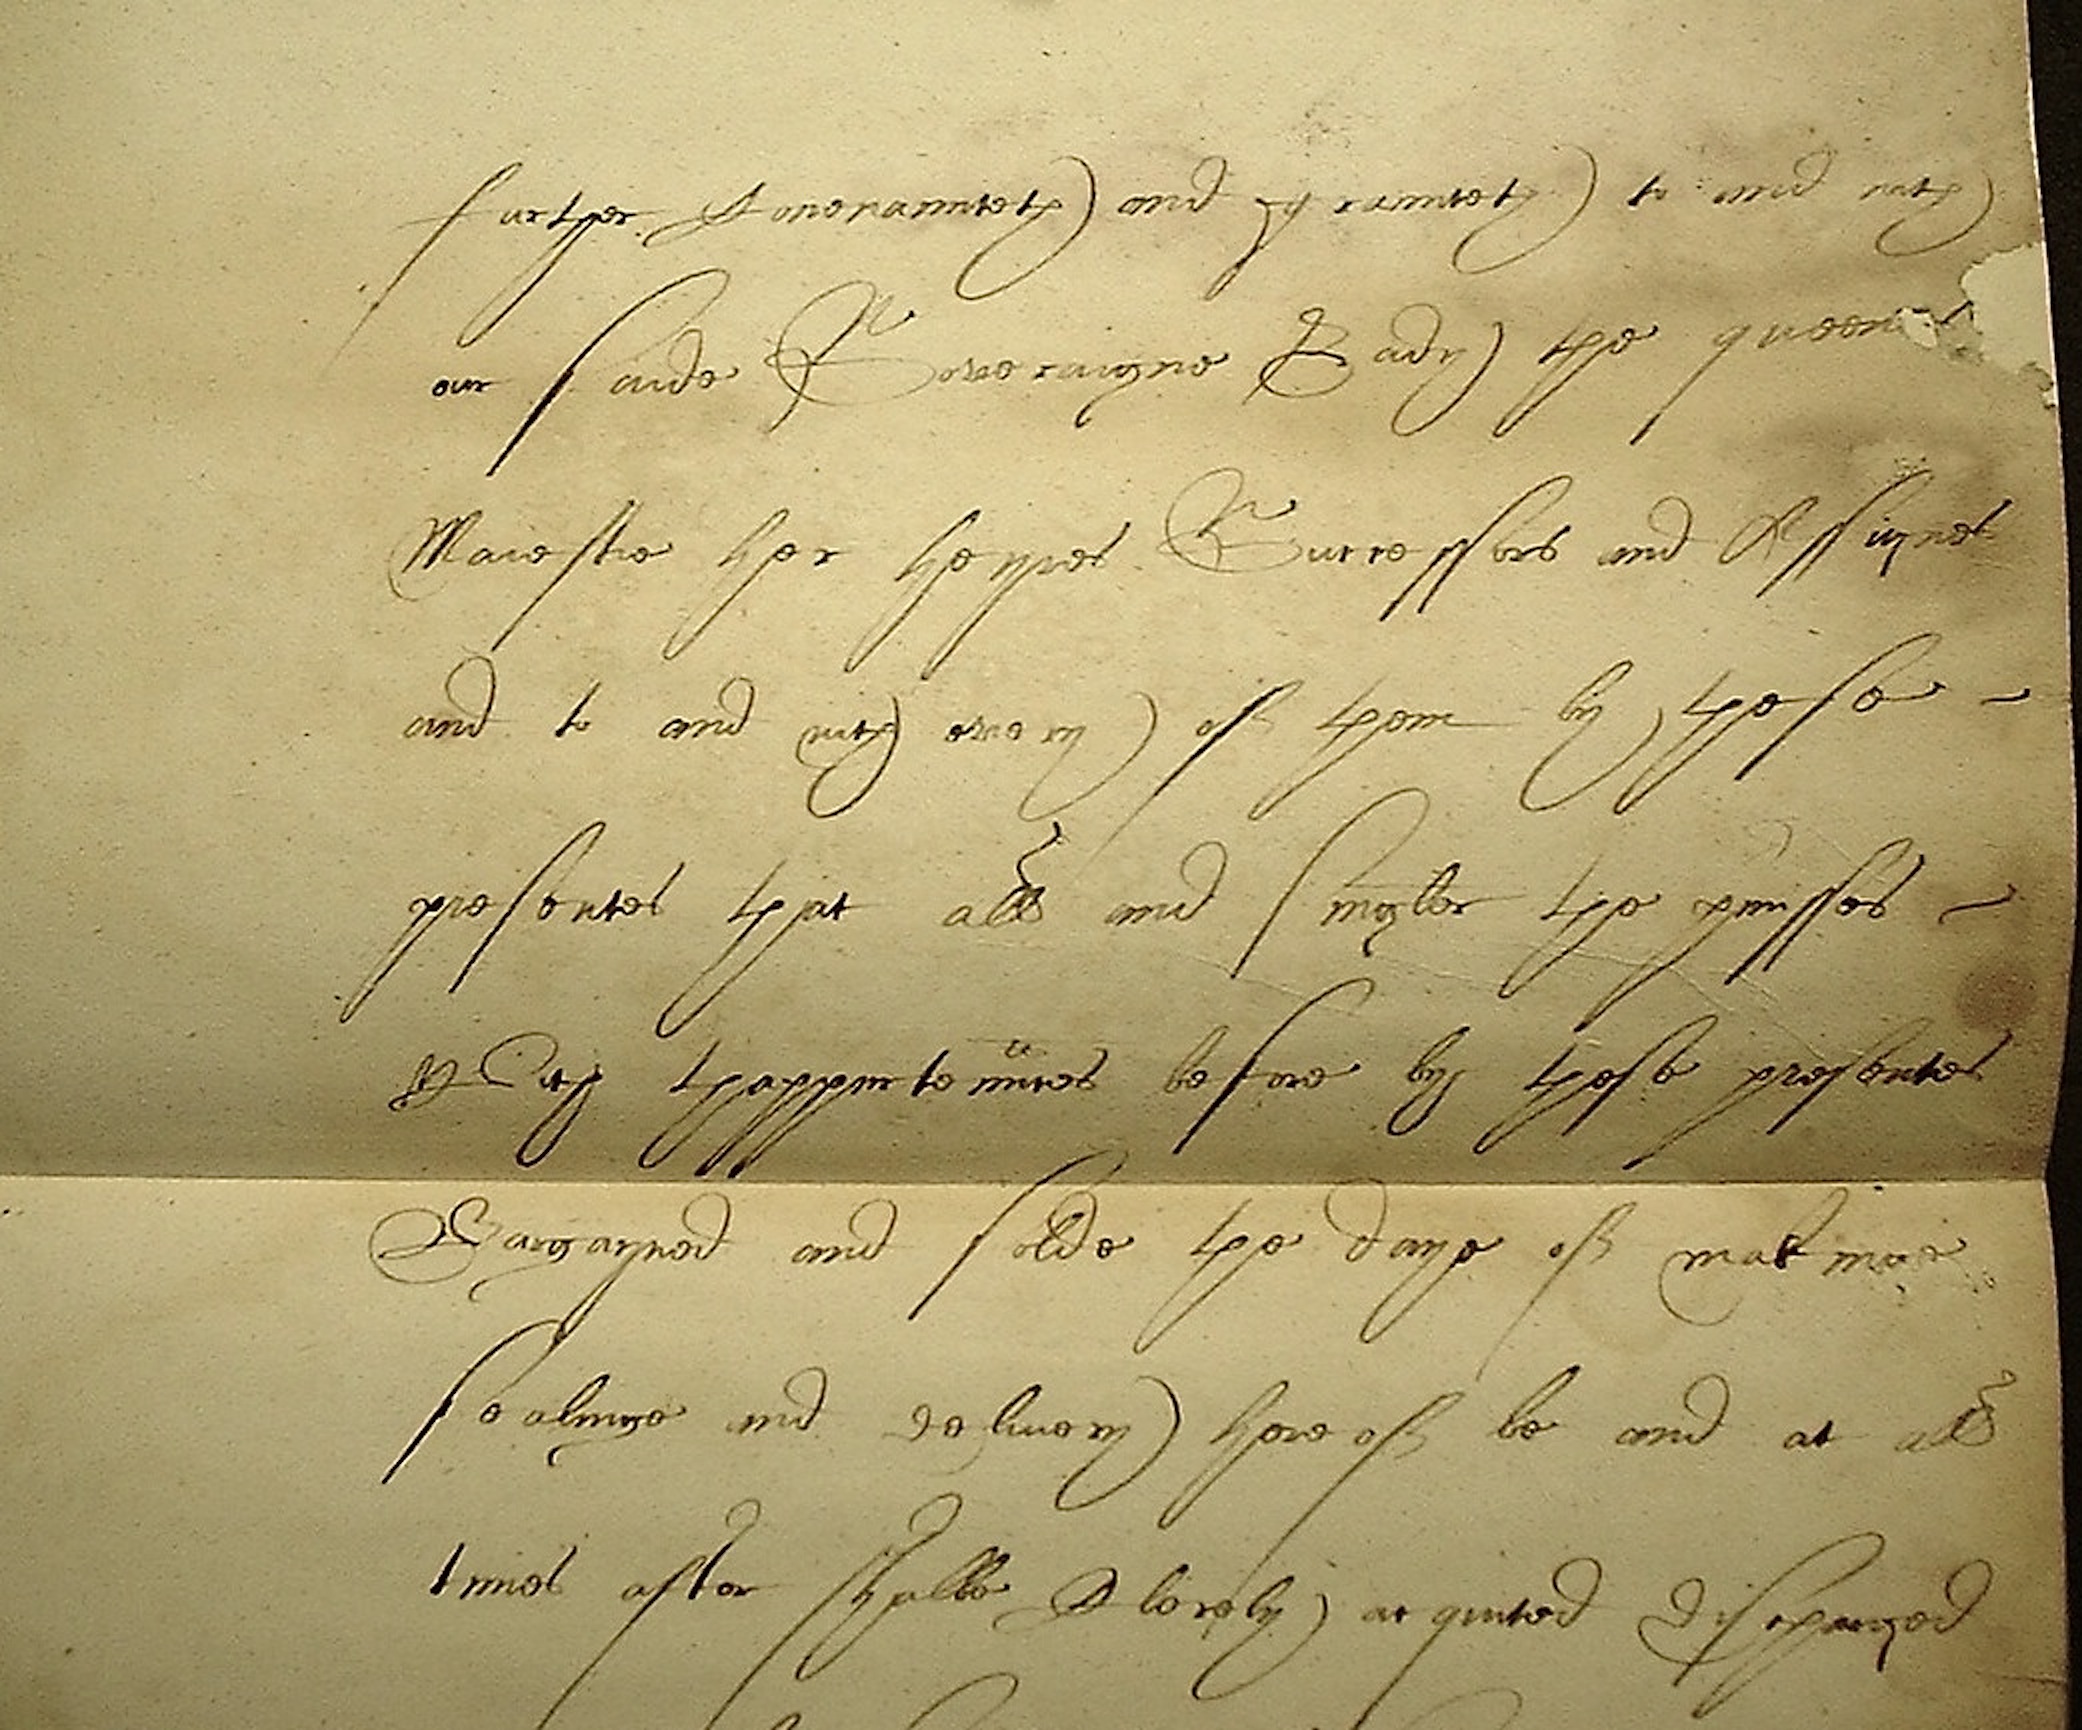 further Covenannteth and graunteth to and with
our saide Soveraigne Lady the queens
Maiestie her heyres Successors and Assignes
and to and with every of them by these
presentes that all and singler the pmisses
With thappurtennces before by these presentes
Bargayned and solde the daye of makinge
sealinge and delivery hereof be and at all
times after shalbe Clerely acquited discharged